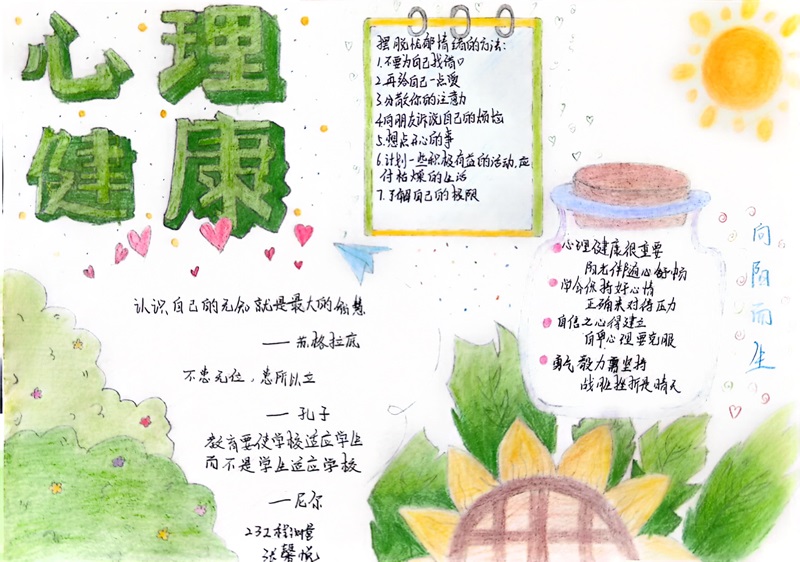 心理
健康
摆脱忧郁情绪的方法:
1.不要为自己找借口
2.再给自己一点爱
3.分散你的注意力
4.向朋友诉说自己的烦恼
5.想点开心的事
6.计划一些积极有益的活动,应
付枯燥的生活
7.了解自己的极限
心理健康很重要
阳光伴随心舒畅
学会保持好心情
正确来对待压力
自信之心得建立
自卑心理要克服
勇气毅力需坚持
战胜挫折是晴天
向阳而生
认识自己的无知就是最大的智慧
——苏格拉底
不患无位,患所以立
—孔子
教育要使学校适应学生
而不是学生适应学校
—尼尔
232工程测量
张馨悦